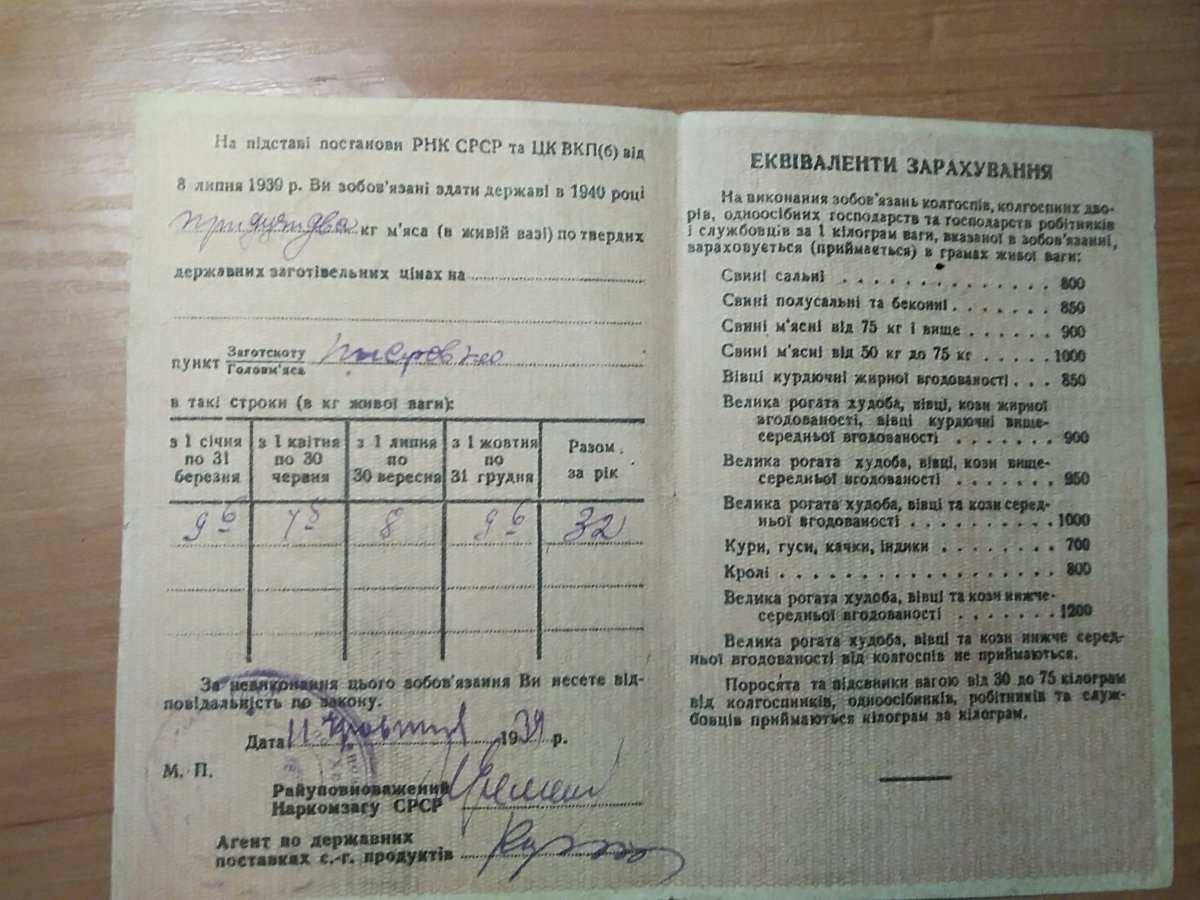 На підставі постанови РНК СРСР та ЦК ВКП(б) від
8 липня 1939 р. Ви зобов'язані здати державі в 1940 році
тридцять два кг м'яса (в живій вазі) по твердих
державних заготівельних цінах на
пункт Заготскоту
Головм'яса
в такі строки (в кг живої ваги):
з 1 січня по 31 березня з 1 квітня по 30 червня з 1 липня по 30 вересна з 1 жовтня по 31 грудня Разом за рік
9 6 7 5 8 9 6 32
За невиконання цього зобов'язання Ви несете від-
повідальність по закону.
Дата 11 жовтня 1939 р.
М. П.
Райуповноважений
Наркомзагу СРСР
Агент по державних
поставках с.-г. продуктів
ЕКВІВАЛЕНТИ ЗАРАХУВАННЯ
На виконання зобов'язань колгоспів, колгоспних дво-
рів, одноосібних господарств та господарств робітників
і службовців за 1 кілограм ваги, вказаної в зобов'язанні,
зараховується (приймається) в грамах живої ваги:
Свині сальні . . . . . . . . . . . . . . 800
Свині полусальні та беконні . . . . . . . 850
Свині м'ясні від 75 кг і вище . . . . . . 900
Свині м'ясні від 50 кг до 75 кг . . . . . 1000
Вівці курдючні жирної вгодованості . . . 850
Велика рогата худоба, вівці, кози жирної
вгодованості, вівці курдючні вище-
середньої вгодованості . . . . . . . 900
Велика рогата худоба, вівці, кози вище-
середньої вгодованості . . . . . . . 950
Велика рогата худоба, вівці та кози серед-
ньої вгодованості . . . . . . . . . . 1000
Кури, гуси, качки, індики . . . . . . . . 700
Кролі . . . . . . . . . . . . . . . . . . 800
Велика рогата худоба, вівці та кози нижче-
середньої вгодованості . . . . . . . 1200
Велика рогата худоба, вівці та кози нижче серед-
ньої вгодованості від колгоспів не приймаються.
Поросята та підсвинки вагою від 30 до 75 кілограм
від колгоспників, одноосібників, робітників та служ-
бовців приймаються кілограм за кілограм.